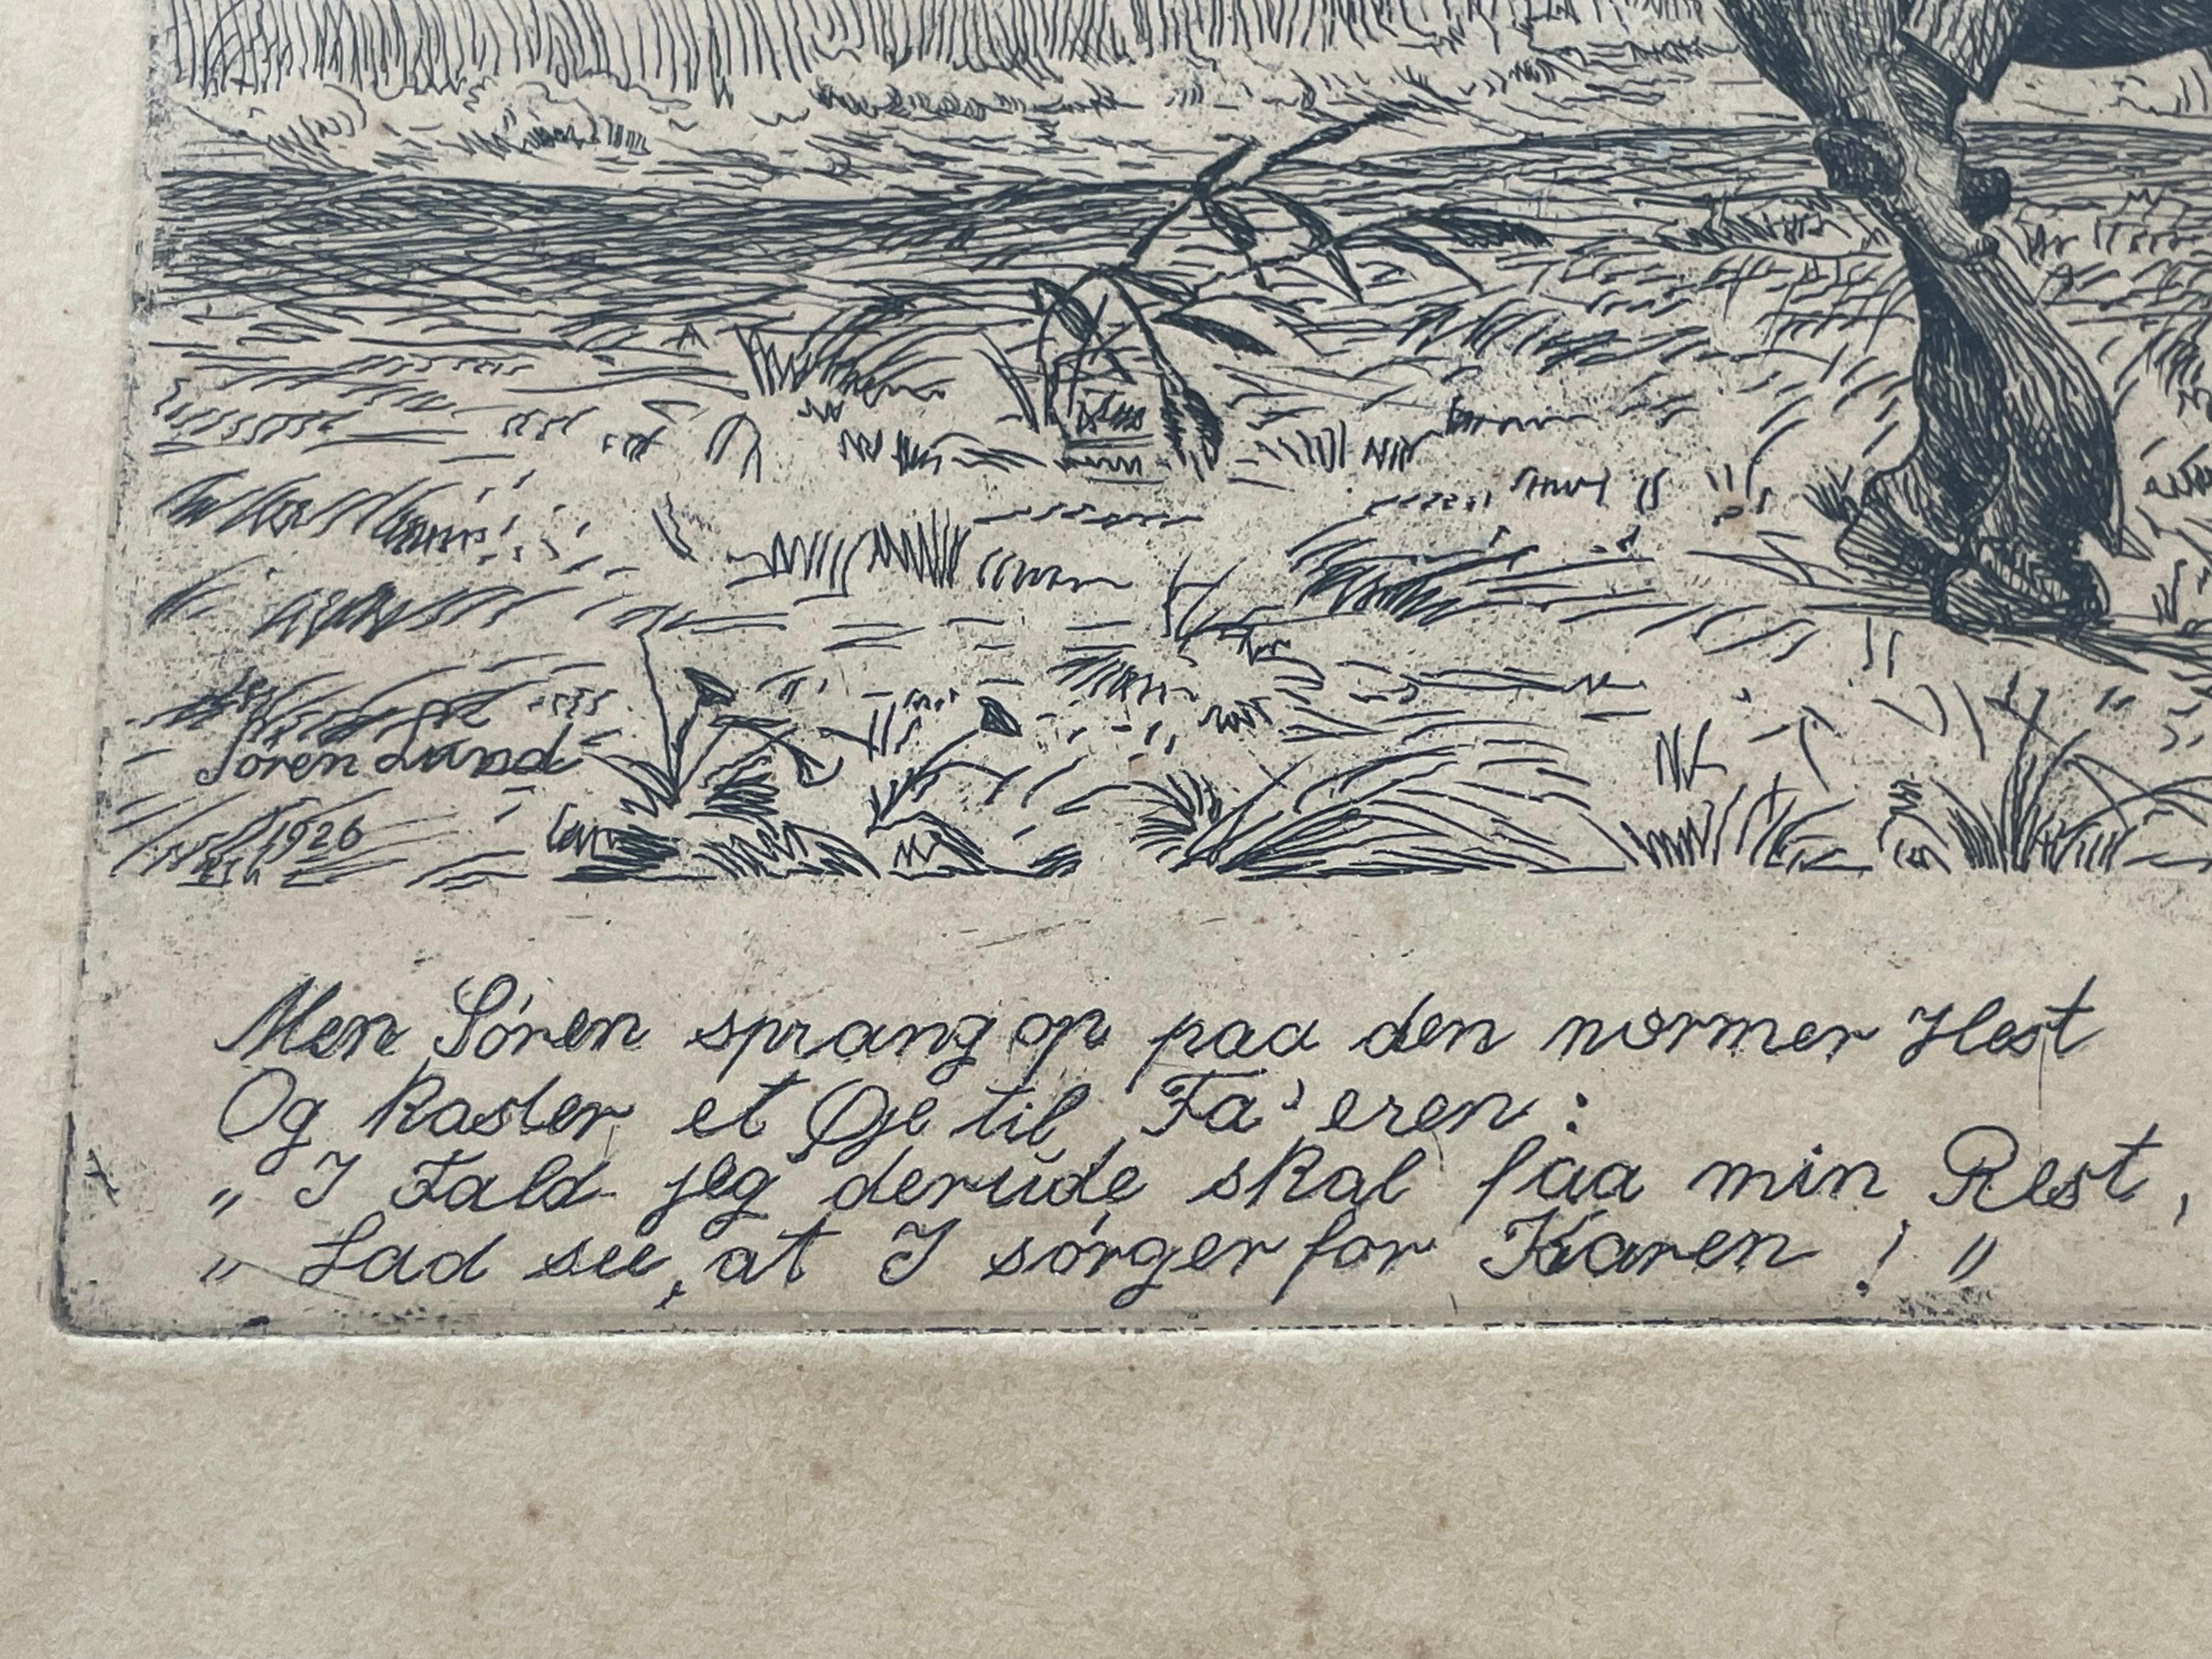 Søren Lund
1926
Men Søren sprang op paa den nørmer Hest
Og kaster et Øje til Fa'eren:
„I Fald jeg derude skal faa min Rest,
„Lad see, at I sørger for Karen!"